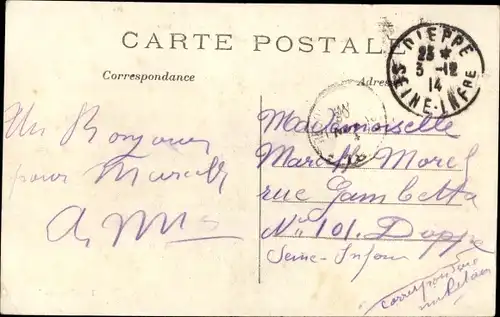 CARTE POSTALE
Correspondance
Adresse
DIEPPE
23 *
3 -12
14
SEINE-INFRE
Un Bonjour
pour Marcelle
Mademoiselle
Morel
rue Gambetta
N° 101. Dieppe
Seine-Infre
correspondance
militaire